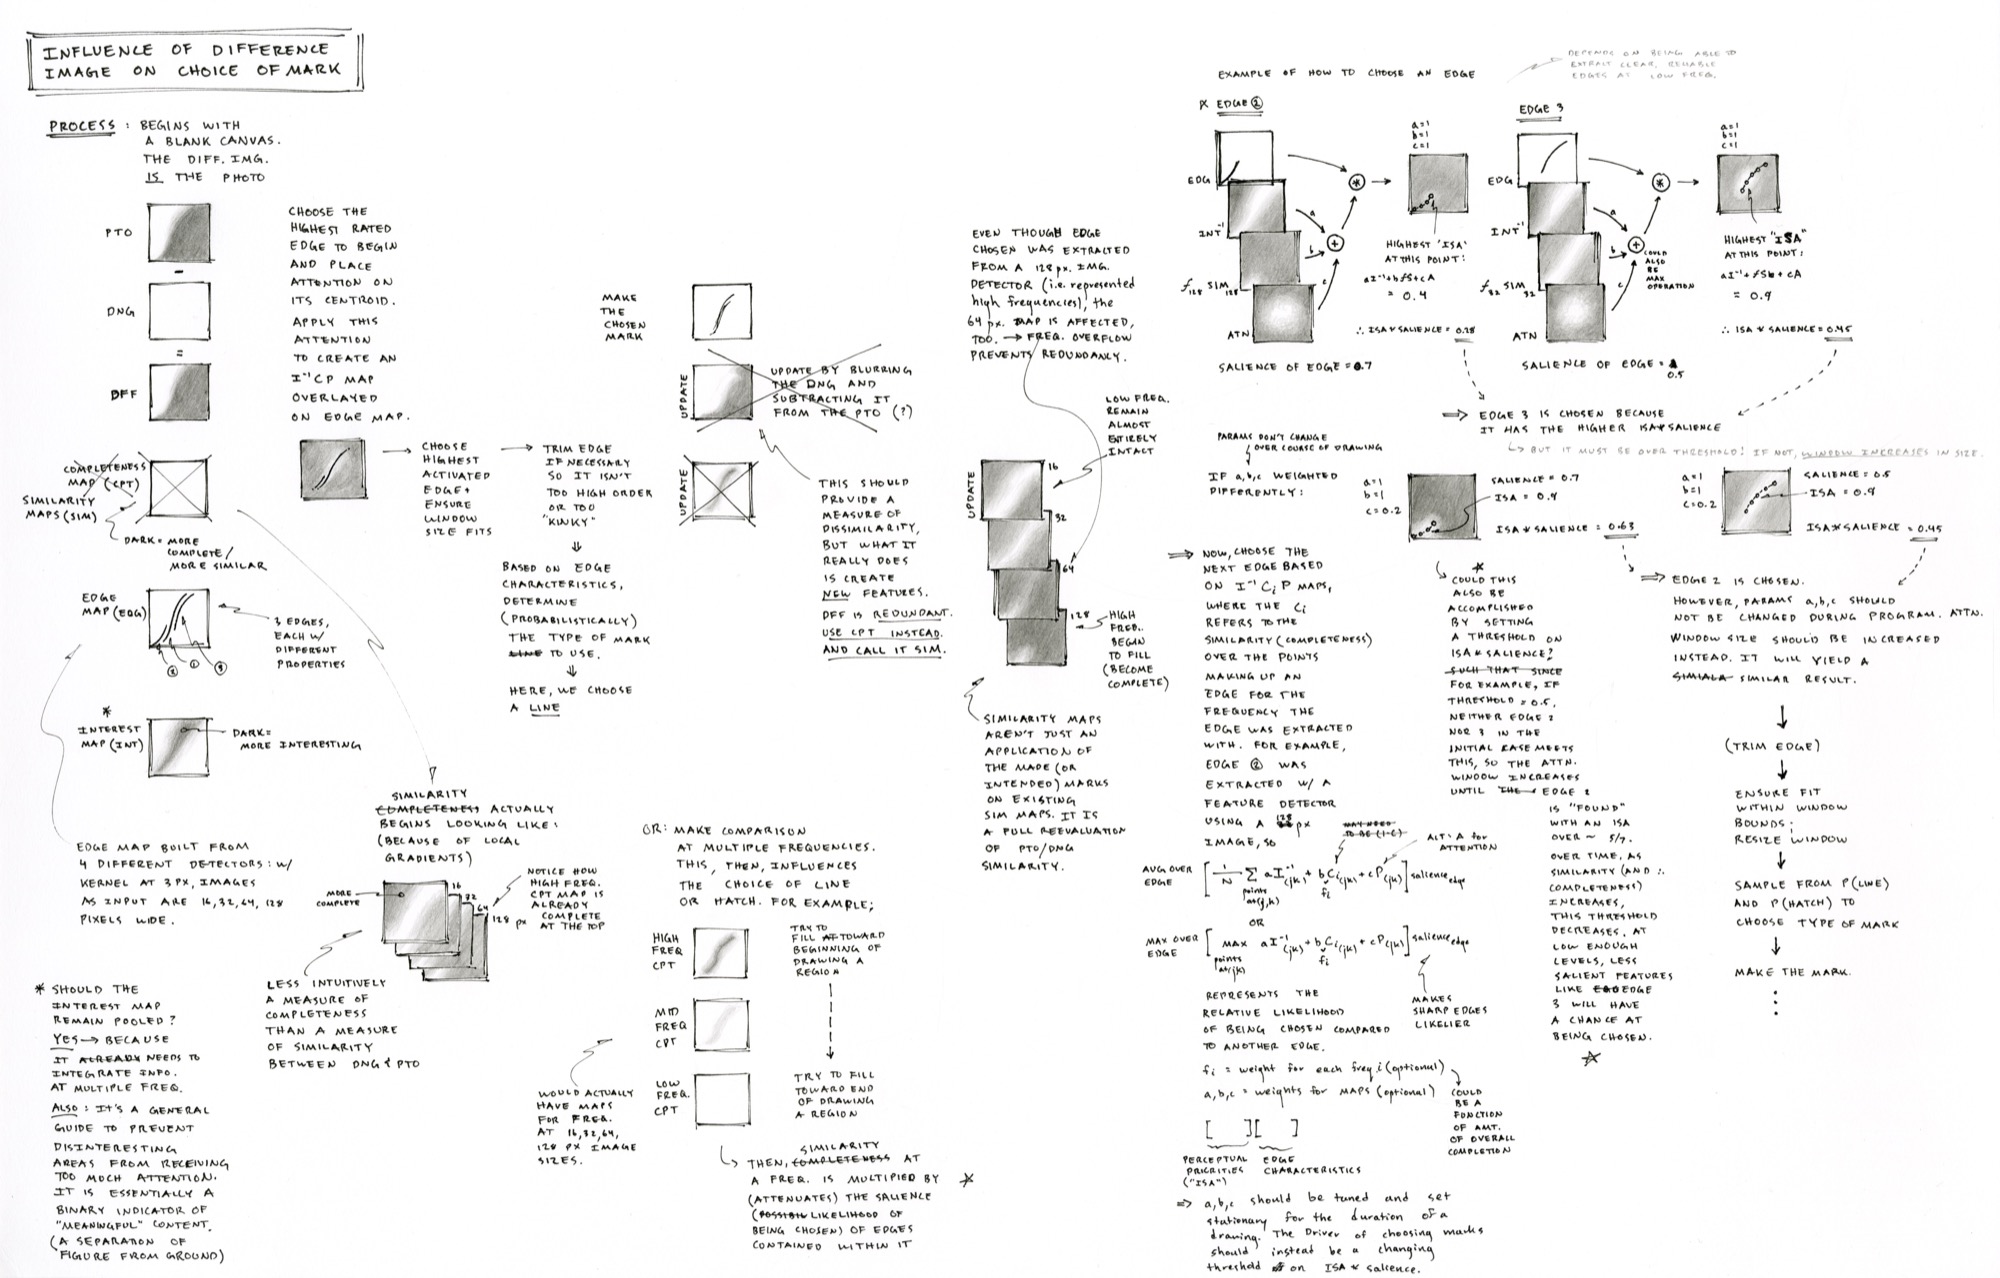 INFLUENCE OF DIFFERENCE
IMAGE ON CHOICE OF MARK
PROCESS : BEGINS WITH
A BLANK CANVAS.
THE DIFF. IMG.
IS THE PHOTO
PTO
-
DNG
=
DFF
COMPLETENESS
MAP (CPT)
SIMILARITY
MAPS (SIM)
DARK = MORE
COMPLETE/
MORE SIMILAR
EDGE
MAP (EDG)
3 EDGES,
EACH W/
DIFFERENT
PROPERTIES
2 1 3
*
INTEREST
MAP (INT)
DARK =
MORE INTERESTING
EDGE MAP BUILT FROM
4 DIFFERENT DETECTORS: W/
KERNEL AT 3 PX, IMAGES
AS INPUT ARE 16, 32, 64, 128
PIXELS WIDE.
* SHOULD THE
INTEREST MAP
REMAIN POOLED?
YES → BECAUSE
IT ALREADY NEEDS TO
INTEGRATE INFO.
AT MULTIPLE FREQ.
ALSO: IT'S A GENERAL
GUIDE TO PREVENT
DISINTERESTING
AREAS FROM RECEIVING
TOO MUCH ATTENTION.
IT IS ESSENTIALLY A
BINARY INDICATOR OF
"MEANINGFUL" CONTENT.
(A SEPARATION OF
FIGURE FROM GROUND)
CHOOSE THE
HIGHEST RATED
EDGE TO BEGIN
AND PLACE
ATTENTION ON
ITS CENTROID.
APPLY THIS
ATTENTION
TO CREATE AN
I⁻¹CP MAP
OVERLAYED
ON EDGE MAP.
→ CHOOSE
HIGHEST
ACTIVATED
EDGE +
ENSURE
WINDOW
SIZE FITS
→ TRIM EDGE
IF NECESSARY
SO IT ISN'T
TOO HIGH ORDER
OR TOO
"KINKY"
⇓
BASED ON EDGE
CHARACTERISTICS,
DETERMINE
(PROBABILISTICALLY)
THE TYPE OF MARK
LINE TO USE.
⇓
HERE, WE CHOOSE
A LINE
SIMILARITY
COMPLETENESS ACTUALLY
BEGINS LOOKING LIKE:
(BECAUSE OF LOCAL
GRADIENTS)
MORE
COMPLETE
16
32
64
128 px
NOTICE HOW
HIGH FREQ.
CPT MAP IS
ALREADY
COMPLETE
AT THE TOP
LESS INTUITIVELY
A MEASURE OF
COMPLETENESS
THAN A MEASURE
OF SIMILARITY
BETWEEN DNG & PTO
MAKE
THE
CHOSEN
MARK
UPDATE
UPDATE BY BLURRING
THE DNG AND
SUBTRACTING IT
FROM THE PTO (?)
UPDATE
THIS SHOULD
PROVIDE A
MEASURE OF
DISSIMILARITY,
BUT WHAT IT
REALLY DOES
IS CREATE
NEW FEATURES.
DFF IS REDUNDANT.
USE CPT INSTEAD.
AND CALL IT SIM.
OR: MAKE COMPARISON
AT MULTIPLE FREQUENCIES.
THIS, THEN, INFLUENCES
THE CHOICE OF LINE
OR HATCH. FOR EXAMPLE;
HIGH
FREQ
CPT
TRY TO
FILL AT TOWARD
BEGINNING OF
DRAWING A
REGION
MID
FREQ
CPT
LOW
FREQ.
CPT
TRY TO FILL
TOWARD END
OF DRAWING
A REGION
WOULD ACTUALLY
HAVE MAPS
FOR FREQ.
AT 16, 32, 64,
128 PX IMAGE
SIZES.
SIMILARITY
THEN, COMPLETENESS AT
A FREQ. IS MULTIPLIED BY *
(ATTENUATES) THE SALIENCE
(POSSIBLE LIKELIHOOD OF
BEING CHOSEN) OF EDGES
CONTAINED WITHIN IT
EVEN THOUGH EDGE
CHOSEN WAS EXTRACTED
FROM A 128 px. IMG.
DETECTOR (i.e. represented
high frequencies), the
64 px. MAP IS AFFECTED,
TOO. → FREQ. OVERFLOW
PREVENTS REDUNDANCY.
LOW FREQ.
REMAIN
ALMOST
ENTIRELY
INTACT
UPDATE
16
32
64
128
HIGH
FREQ..
BEGIN
TO FILL
(BECOME
COMPLETE)
SIMILARITY MAPS
AREN'T JUST AN
APPLICATION OF
THE MADE (OR
INTENDED) MARKS
ON EXISTING
SIM MAPS. IT IS
A FULL REEVALUATION
OF PTO/DNG
SIMILARITY.
EXAMPLE OF HOW TO CHOOSE AN EDGE
DEPENDS ON BEING ABLE TO
EXTRACT CLEAR, RELIABLE
EDGES AT LOW FREQ.
EDGE 2
EDG
INT⁻¹
f128 SIM128
ATN
a
b
c
+
*
a=1
b=1
c=1
HIGHEST 'ISA'
AT THIS POINT:
aI⁻¹+bfS+cA
= 0.4
∴ ISA * SALIENCE = 0.28
SALIENCE OF EDGE = 0.7
EDGE 3
EDG
INT⁻¹
f32 SIM32
ATN
a
b
c
+
*
COULD
ALSO
BE
MAX
OPERATION
a=1
b=1
c=1
HIGHEST "ISA"
AT THIS POINT:
aI⁻¹+fSb+cA
= 0.9
∴ ISA * SALIENCE = 0.45
SALIENCE OF EDGE =
0.5
⇒ EDGE 3 IS CHOSEN BECAUSE
IT HAS THE HIGHER ISA*SALIENCE
↳ BUT IT MUST BE OVER THRESHOLD! IF NOT, WINDOW INCREASES IN SIZE.
PARAMS DON'T CHANGE
OVER COURSE OF DRAWING
IF a,b,c WEIGHTED
DIFFERENTLY:
a=1
b=1
c=0.2
SALIENCE = 0.7
ISA = 0.9
ISA * SALIENCE = 0.63
a=1
b=1
c=0.2
SALIENCE = 0.5
ISA = 0.9
ISA*SALIENCE = 0.45
⇒ NOW, CHOOSE THE
NEXT EDGE BASED
ON I⁻¹ Ci P MAPS,
WHERE THE Ci
REFERS TO THE
SIMILARITY (COMPLETENESS)
OVER THE POINTS
MAKING UP AN
EDGE FOR THE
FREQUENCY THE
EDGE WAS EXTRACTED
WITH. FOR EXAMPLE,
EDGE 2 WAS
EXTRACTED W/ A
FEATURE DETECTOR
USING A 128 px
IMAGE, SO
MAY NEED
TO BE (1-C)
ALT: A for
ATTENTION
AVG OVER
EDGE
[1/N Σ aI⁻¹(jk) + bCi(jk) + cP(jk)] salience edge
points
at(j,k)
fi
OR
MAX OVER
EDGE
[MAX aI⁻¹(jk) + bCi(jk) + cP(jk)] salience edge
points
at(jk)
fi
REPRESENTS THE
RELATIVE LIKELIHOOD
OF BEING CHOSEN COMPARED
TO ANOTHER EDGE.
MAKES
SHARP EDGES
LIKELIER
fi = weight for each freq i (optional)
a,b,c = weights for MAPS (optional)
COULD
BE A
FUNCTION
OF AMT.
OF OVERALL
COMPLETION
[ ][ ]
PERCEPTUAL
PRIORITIES
("ISA")
EDGE
CHARACTERISTICS
⇒ a,b,c should be tuned and set
stationary for the duration of a
drawing. The Driver of choosing marks
should instead be a changing
threshold on ISA * salience.
*
COULD THIS
ALSO BE
ACCOMPLISHED
BY SETTING
A THRESHOLD ON
ISA * SALIENCE?
SUCH THAT SINCE
FOR EXAMPLE, IF
THRESHOLD = 0.5,
NEITHER EDGE 2
NOR 3 IN THE
INITIAL CASE MEETS
THIS, SO THE ATTN.
WINDOW INCREASES
UNTIL THE EDGE 2
IS "FOUND"
WITH AN ISA
OVER ~ 5/7.
OVER TIME, AS
SIMILARITY (AND ∴
COMPLETENESS)
INCREASES,
THIS THRESHOLD
DECREASES. AT
LOW ENOUGH
LEVELS, LESS
SALIENT FEATURES
LIKE EDGE
3 WILL HAVE
A CHANCE AT
BEING CHOSEN.
⇒ EDGE 2 IS CHOSEN.
HOWEVER, PARAMS a,b,c SHOULD
NOT BE CHANGED DURING PROGRAM. ATTN.
WINDOW SIZE SHOULD BE INCREASED
INSTEAD. IT WILL YIELD A
SIMIALA SIMILAR RESULT.
↓
(TRIM EDGE)
↓
ENSURE FIT
WITHIN WINDOW
BOUNDS;
RESIZE WINDOW
↓
SAMPLE FROM P(LINE)
AND P(HATCH) TO
CHOOSE TYPE OF MARK
↓
MAKE THE MARK.